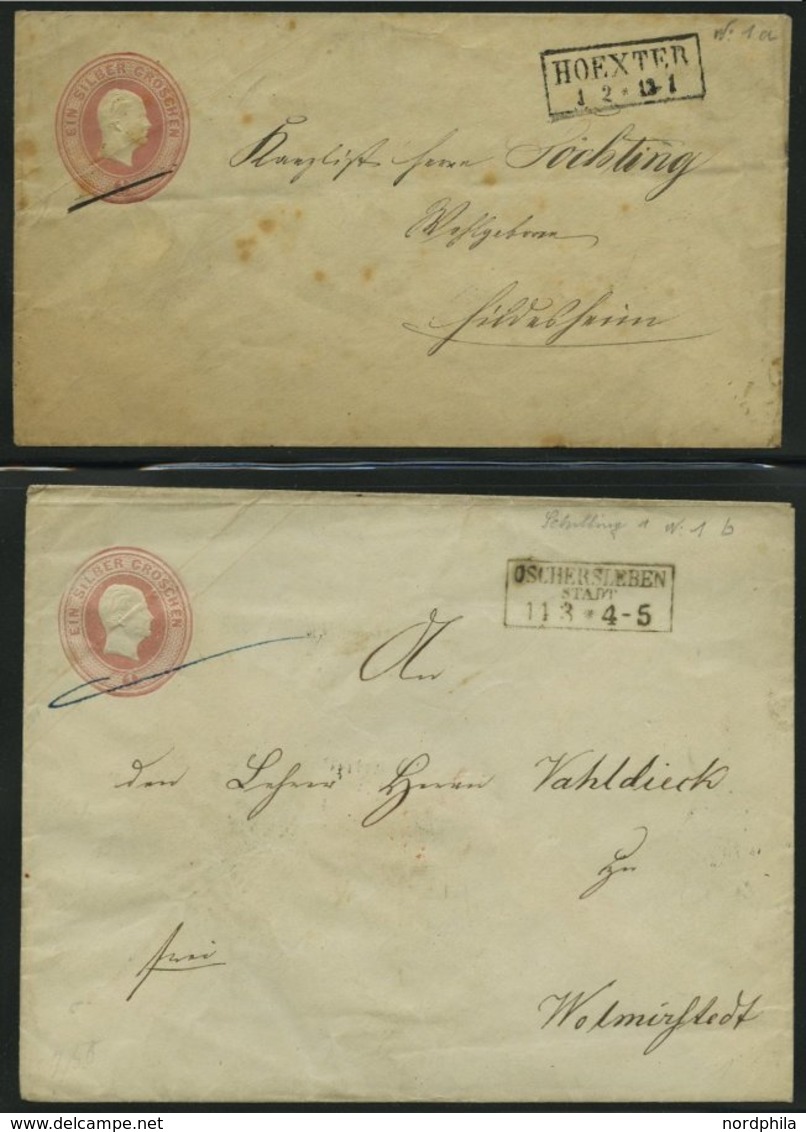 N: 1 a
HOEXTER
1 2 * 12-1
EIN SILBER GROSCHEN
Kanzlist Herrn Söchting
Wohlgeboren
Hildesheim
Schilling 1 N: 1 b
OSCHERSLEBEN
STADT
11 3 * 4-5
EIN SILBER GROSCHEN
An
den Lehrer Herrn Vahldieck
zu
frei
Wolmirstedt
nordphila